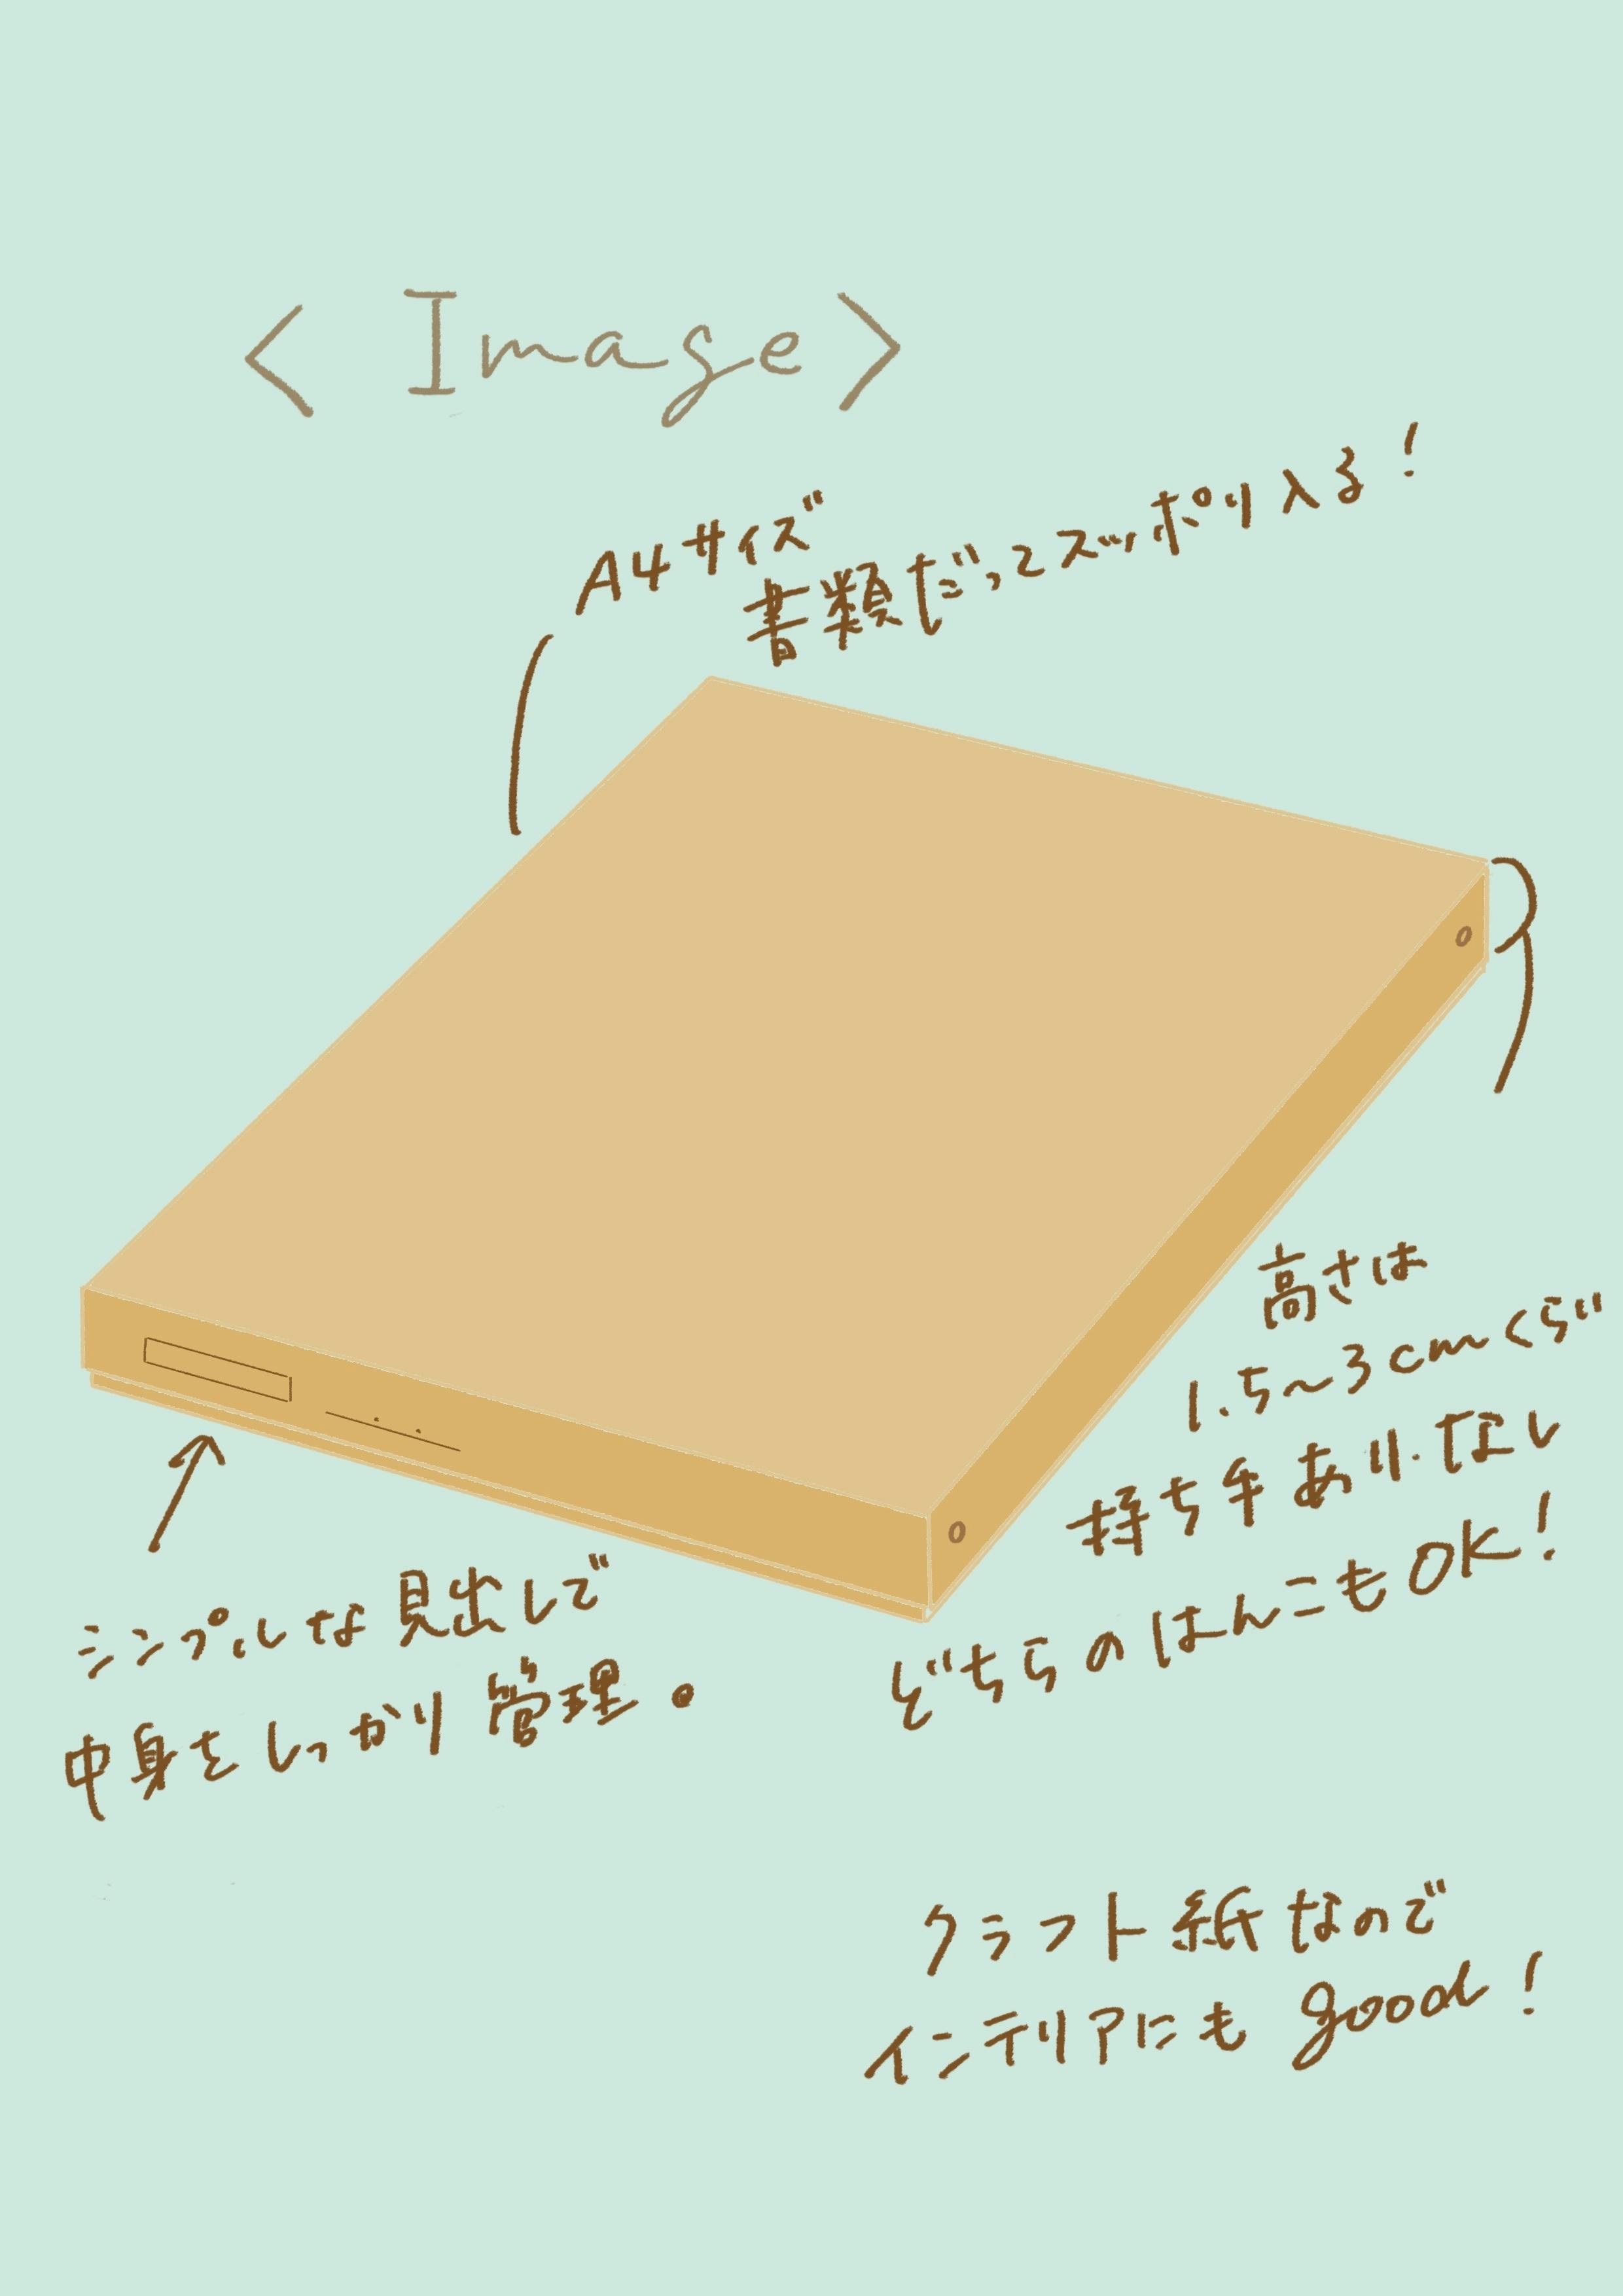 < Image >
A4サイズ
書類だってスッポリ入る!
高さは
1.5~3cmくらい
持ち手あり・なし
どちらのはんこもOK!
シンプルな見出しで
中身をしっかり管理。
クラフト紙なので
インテリアにもgood!